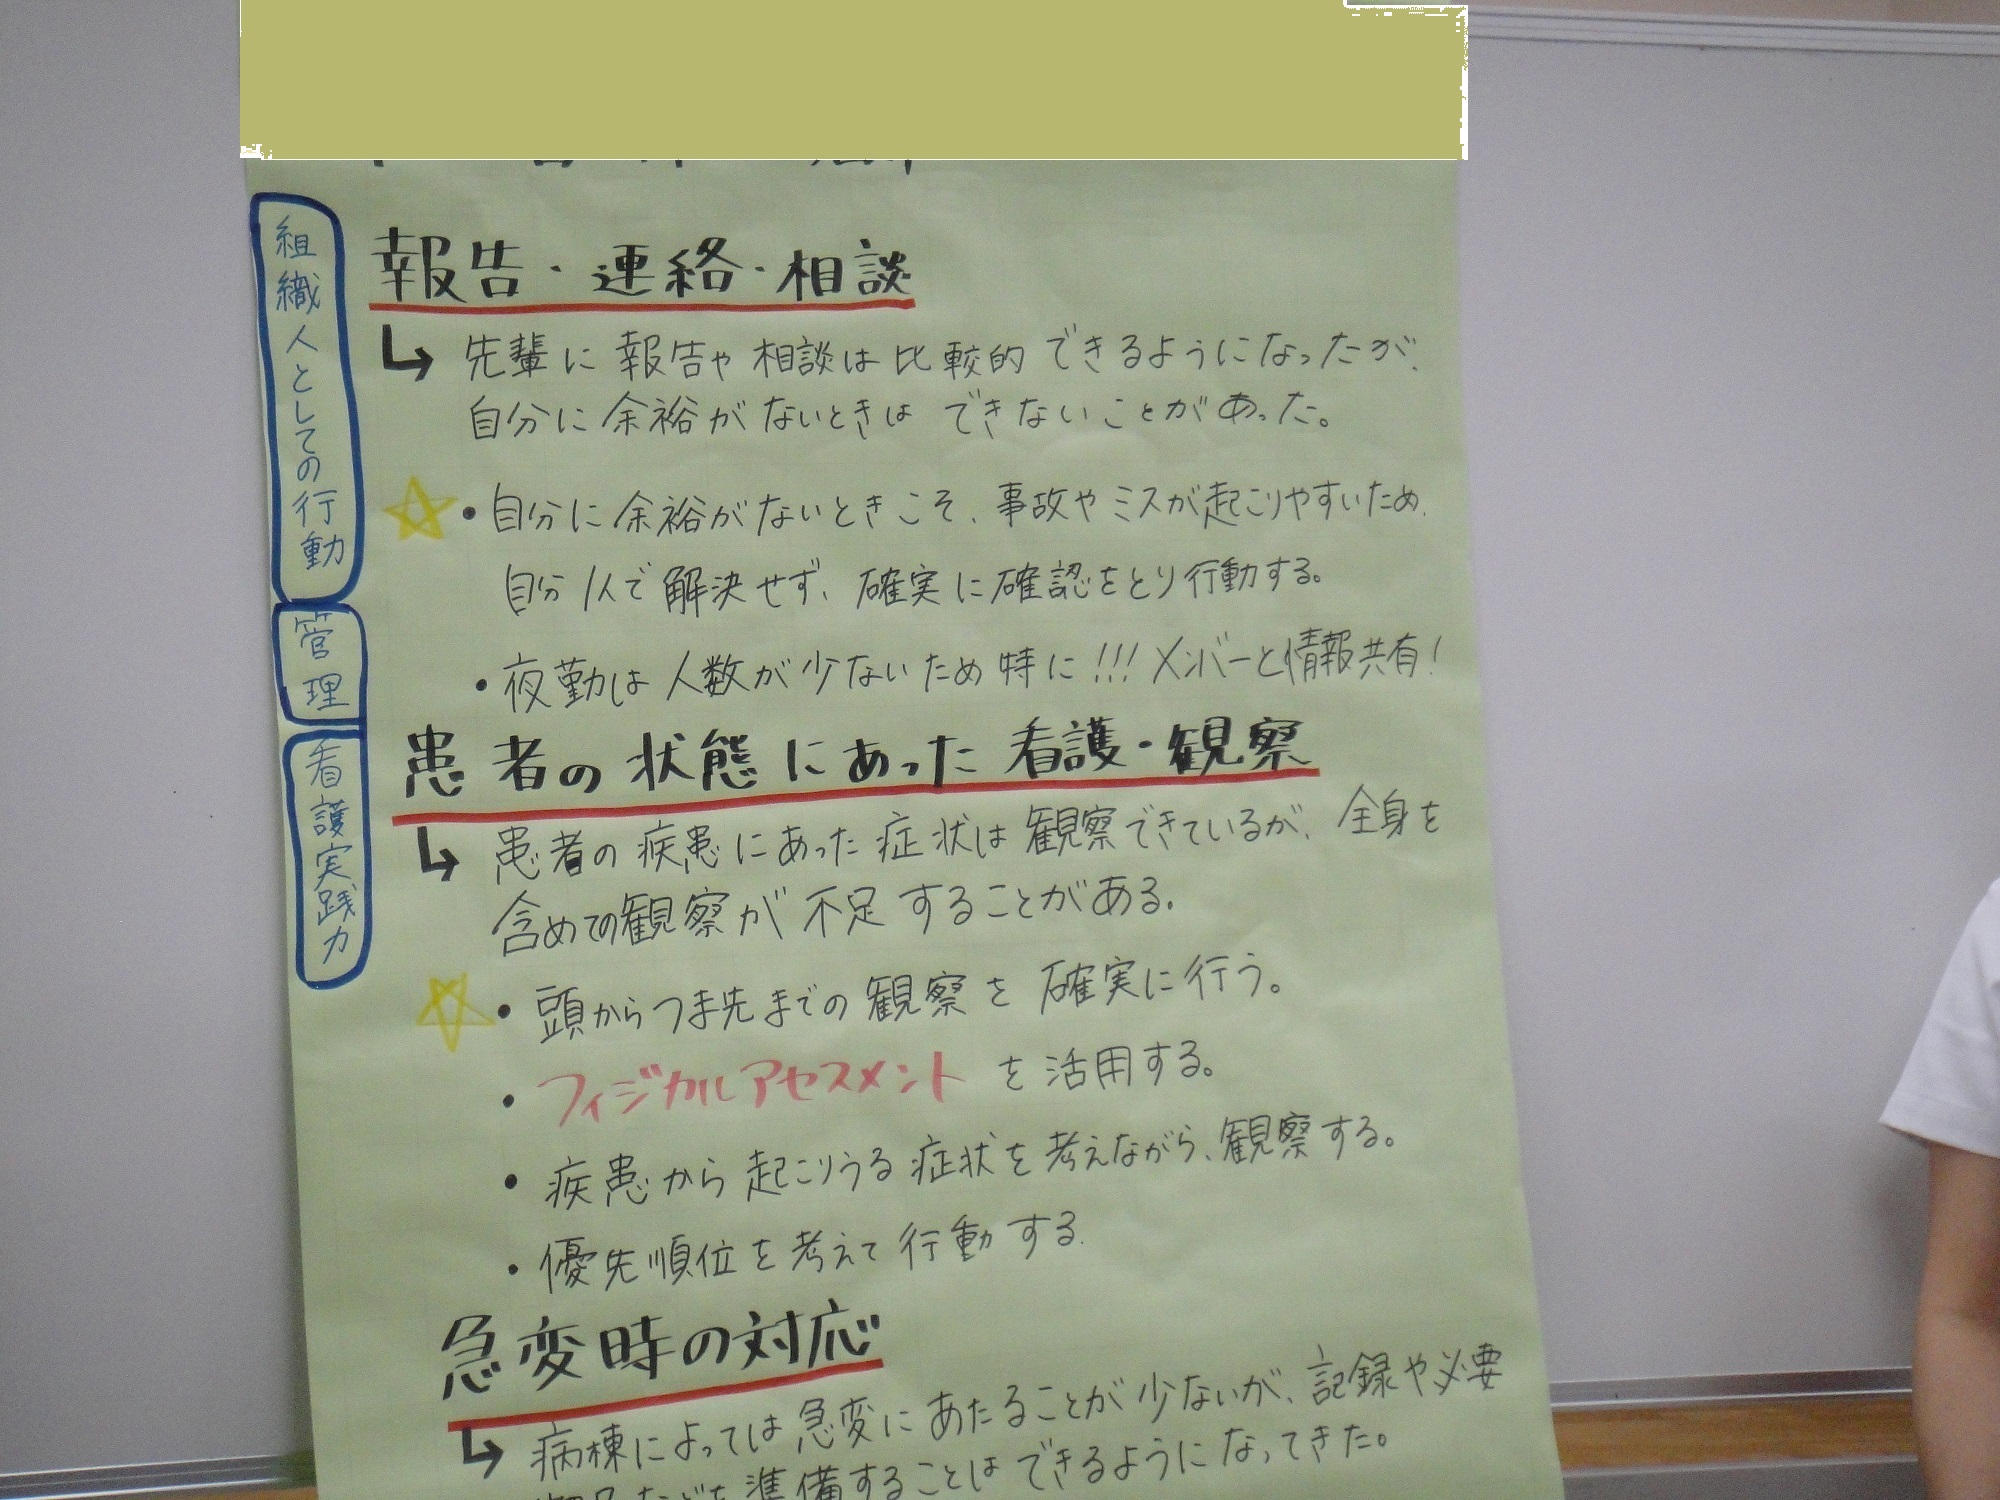 組織人としての行動
管理
看護実践力
報告・連絡・相談
↳ 先輩に報告や相談は比較的できるようになったが、
自分に余裕がないときはできないことがあった。
☆・自分に余裕がないときこそ、事故やミスが起こりやすいため、
自分1人で解決せず、確実に確認をとり行動する。
・夜勤は人数が少ないため特に!!!メンバーと情報共有!
患者の状態にあった看護・観察
↳ 患者の疾患にあった症状は観察できているが、全身を
含めての観察が不足することがある。
☆・頭からつま先までの観察を確実に行う。
・フィジカルアセスメントを活用する。
・疾患から起こりうる症状を考えながら、観察する。
・優先順位を考えて行動する.
急変時の対応
↳ 病棟によっては急変にあたることが少ないが、記録や必要
準備することはできるようになってきた。